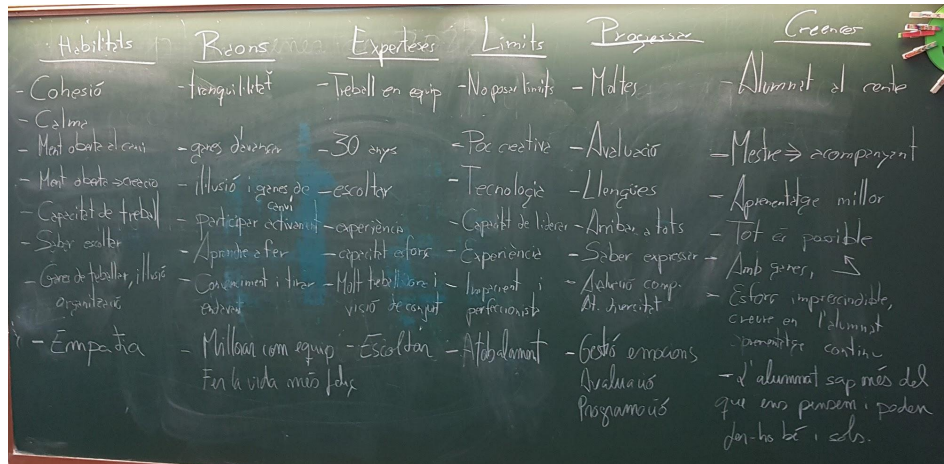 Habilitats
- Cohesió
- Calma
- Ment oberta al canvi
- Ment oberta → creació
- Capacitat de treball
- Saber escoltar
- Ganes de treballar, il·lusió
organització
- Empatia
Raons
- tranquilitat
- ganes d'avançar
- il·lusió i ganes de
canvi
- participar activament
- Aprendre a fer
- Coneixement i tirar
endavant
- Millorar com equip
Fer la vida més feliç
Experteses
- Treball en equip
- 30 anys
- escoltar
- experiència
- capacitat esforç
- Molt treball i
visió de conjunt
- Escoltar
Límits
- No posar límits
- Poc creativa
- Tecnologia
- Capacitat de liderar
- Experiència
- Impacient i
perfeccionista
- Atabalament
Progressar
- Moltes
- Avaluació
- Llengües
- Arribar a tots
- Saber expressar
comp.
At. diversitat
- Gestió emocions
Avaluació
Programació
Creences
- Alumnat al centre
- Mestre ⇒ acompanyant
- Aprenentatge millor
- Tot és possible
- Amb ganes,
- Esforç imprescindible,
creure en l'alumnat
aprenentatge continu
- L'alumnat sap més del
que ens pensem i poden
fer-ho bé i sols.